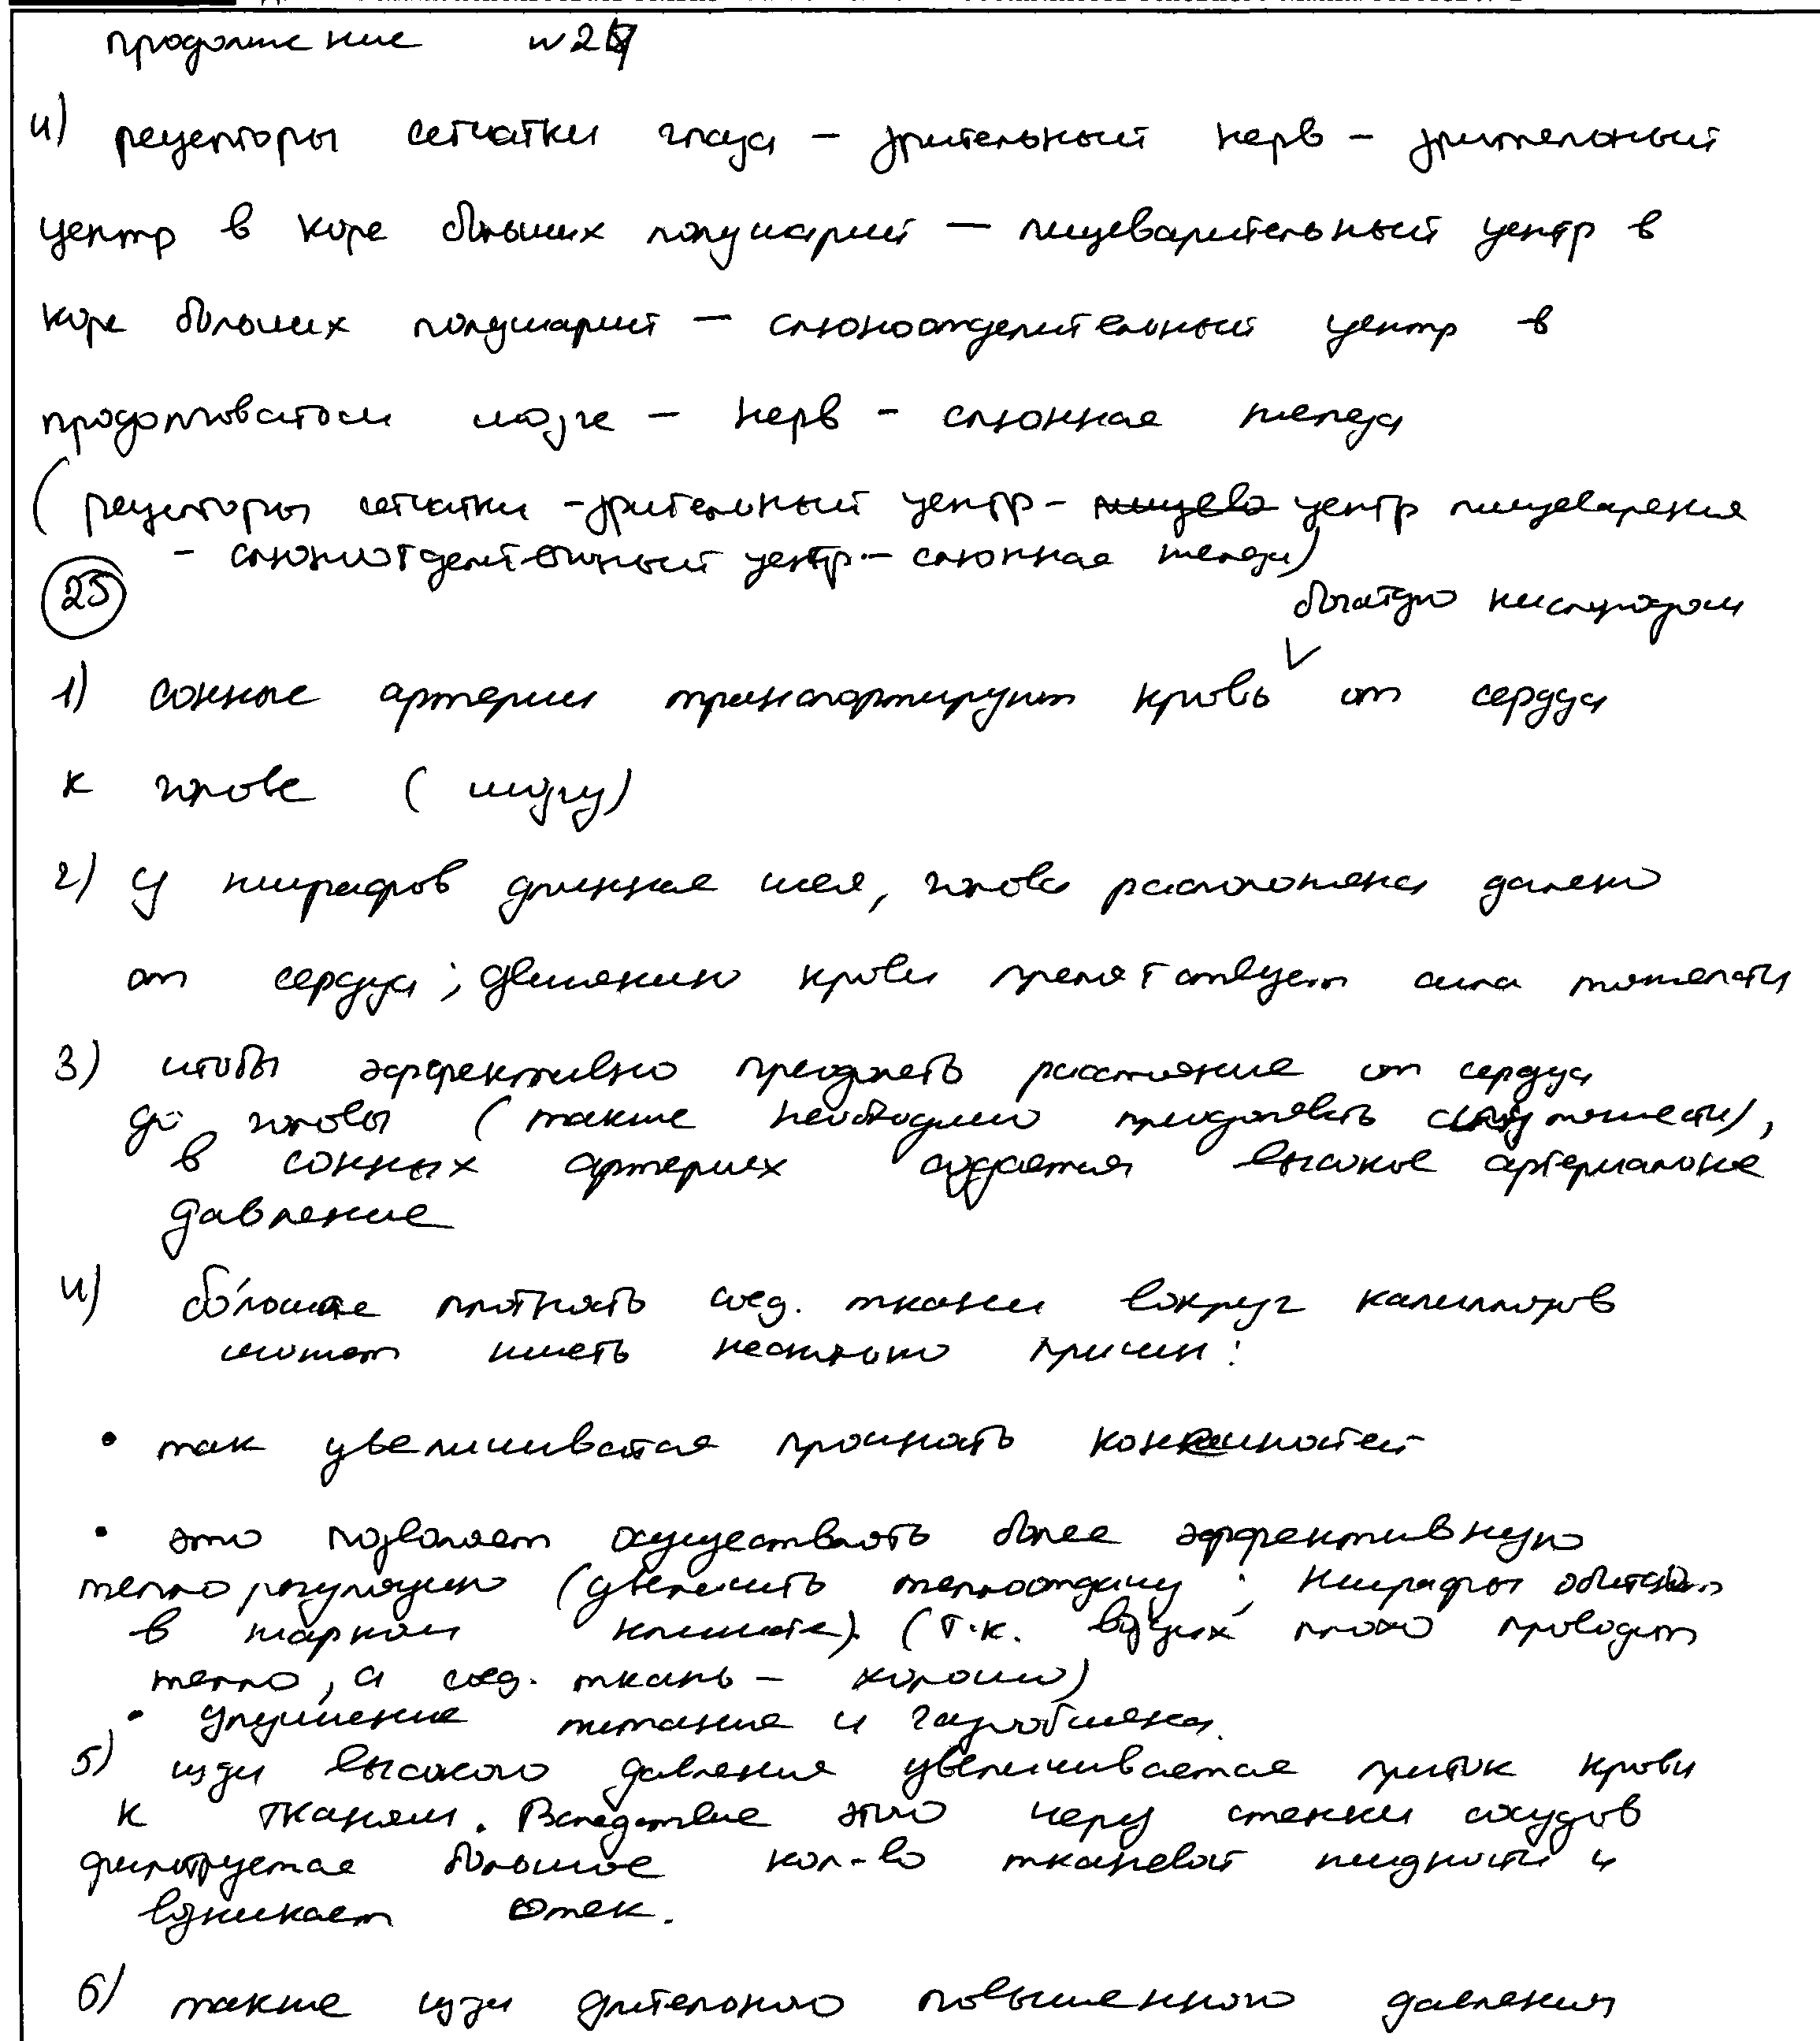 продолжение №24
4) рецепторы сетчатки глаза – зрительный нерв – зрительный
центр в коре больших полушарий – пищеварительный центр в
коре больших полушарий – слюноотделительный центр в
продолговатом мозге – нерв – слюнная железа
(рецепторы сетчатки – зрительный центр – центр пищеварения
– слюноотделительный центр – слюнная железа)
25
богатую кислородом
1) сонные артерии транспортируют кровь от сердца
к голове (мозгу)
2) У жирафов длинная шея, голова расположена далеко
от сердца; движению крови препятствует сила тяжести
3) чтобы эффективно преодолеть расстояние от сердца
до головы (также необходимо преодолевать силу тяжести),
в сонных артериях создается высокое артериальное
давление
4) бо́льшая плотность соед. ткани вокруг капилляров
может иметь несколько причин:
• так увеличивается прочность конечностей
• это позволяет осуществлять более эффективную
терморегуляцию (увеличить теплоотдачу; жирафы обитают
в жарком климате). (т.к. воздух плохо проводит
тепло, а соед. ткань – хорошо)
• улучшение питания и газообмена.
5) из-за высокого давления увеличивается приток крови
к тканям. Вследствие этого через стенки сосудов
фильтруется большое кол-во тканевой жидкости и
возникает отек.
6) также из-за длительного повышенного давления